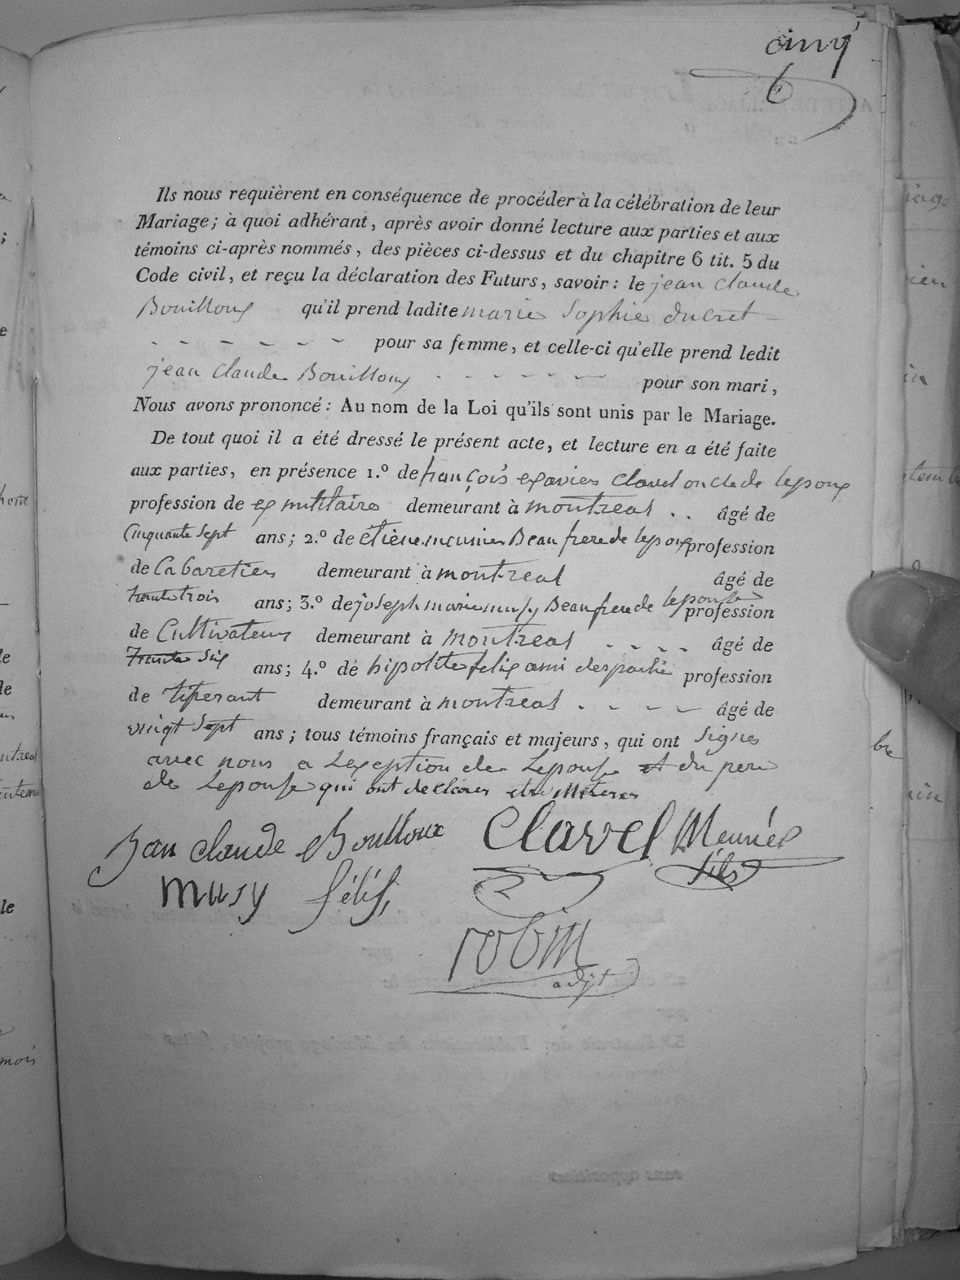 cinq
6
Ils nous requièrent en conséquence de procéder à la célébration de leur
Mariage; à quoi adhérant, après avoir donné lecture aux parties et aux
témoins ci-après nommés, des pièces ci-dessus et du chapitre 6 tit. 5 du
Code civil, et reçu la déclaration des Futurs, savoir: le jean Claude
Bouilloux qu'il prend ladite marie Sophie ducret
pour sa femme, et celle-ci qu'elle prend ledit
jean Claude Bouilloux pour son mari,
Nous avons prononcé: Au nom de la Loi qu'ils sont unis par le Mariage.
De tout quoi il a été dressé le présent acte, et lecture en a été faite
aux parties, en présence 1.º de françois exavier Clavel oncle de lepoux
profession de ex militaire demeurant à montreal .. âgé de
Cinquante Sept ans; 2.º de étiene meunier Beau frere de lepoux profession
de Cabaretier demeurant à montreal âgé de
trente trois ans; 3.º de joseph marie musy Beau frere de lepouse profession
de Cultivateur demeurant à montreal .... âgé de
trente Six ans; 4.º de hipolite felix ami des partie profession
de tiserant demeurant à montreal . - - - âgé de
vingt Sept ans; tous témoins français et majeurs, qui ont signes
avec nous a Lexception de Lepouse et du pere
de Lepouse qui ont declarer être
Jean Claude Boulloux Clavel Meunier
fils
musy félix
robin
adjt